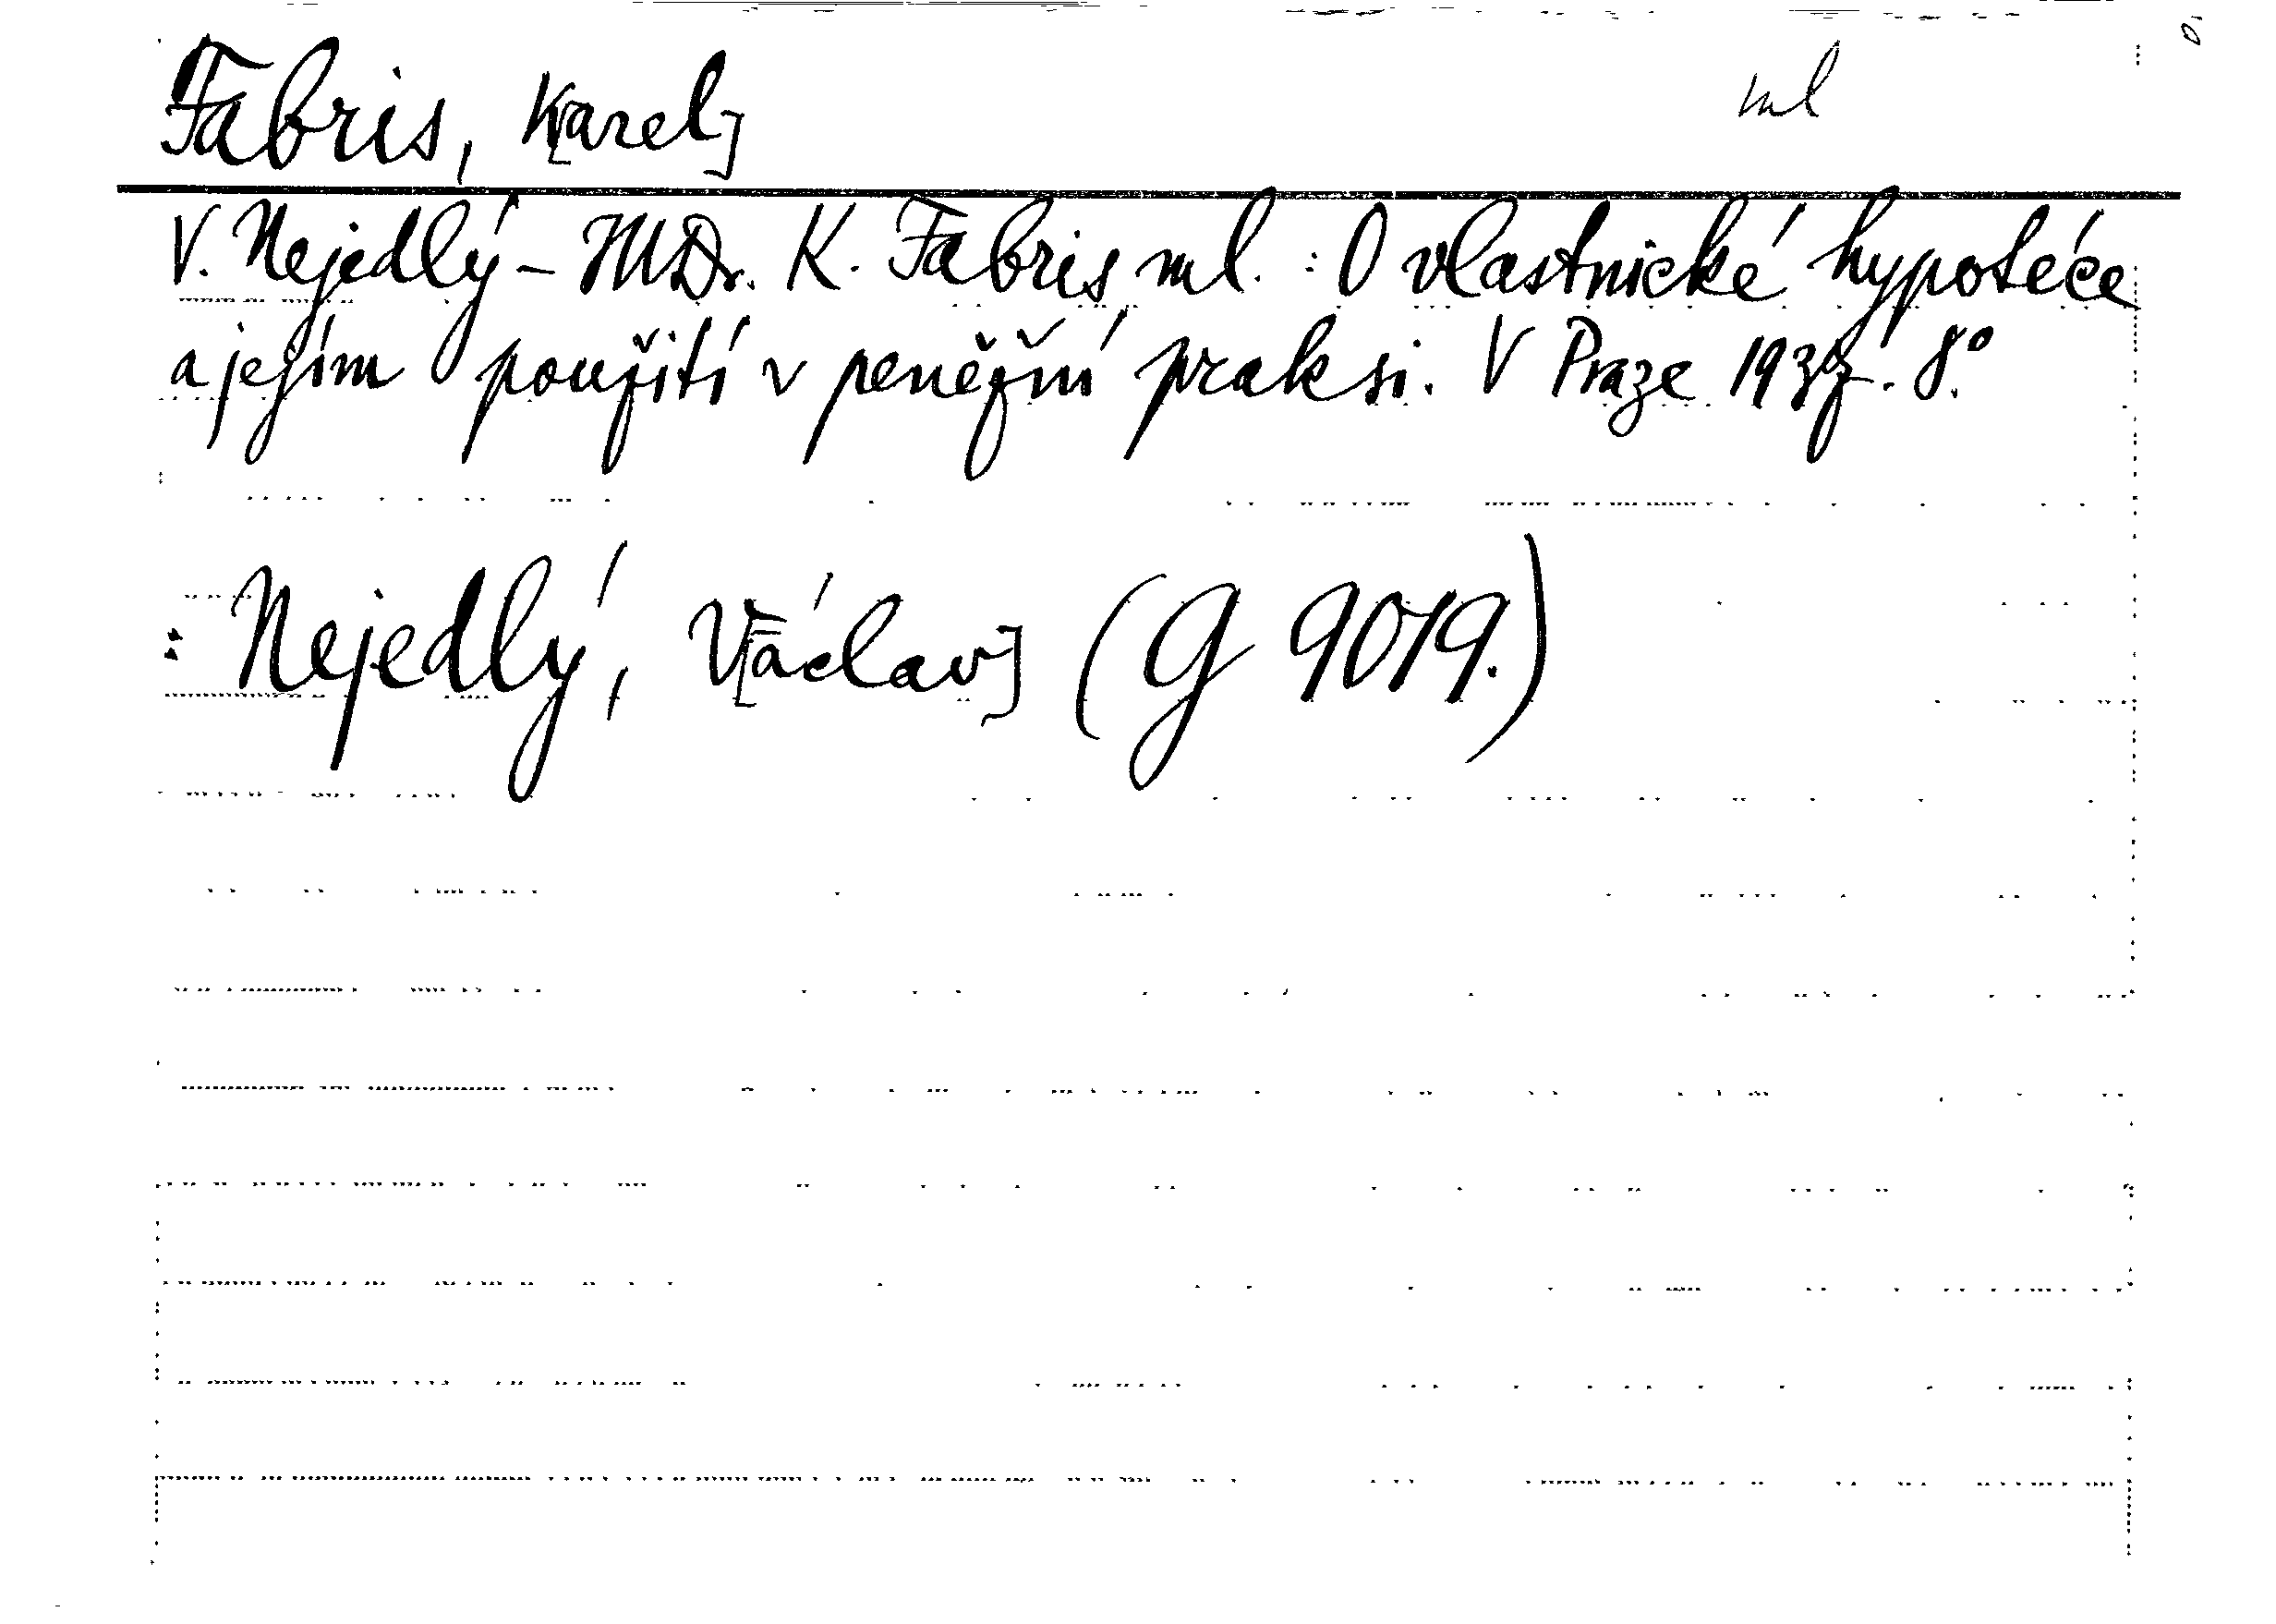 Fabris, K[arel] ml
V. Nejedlý - JUDr. K. Fabris ml. : O vlastnické hypotéce
a jejím použití v peněžní praksi. V Praze 8°.
: Nejedlý, V[áclav] (G 9079.)